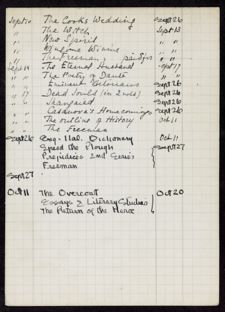 Sept 10 The Cook's Wedding Sept 26
" " The Witch Sept 13
" " New Spirit " "
" " " "
" " The Freeman " "
Sept 14 The Eternal Husband Sept 17
" " The Poetry of Dante " "
" " Eminent Victorians Sept 26
Sept 17 Dead Souls (in 2 vols) Sept 26
" " Sept 26
" " Casanova's Homecoming Sept 26
" " The Outline of History Oct 11
" " The Freeman
Sept 26 Eng-Ital. Dictionary Oct 11
Speed the Plough Sept 27
Prejudices 2nd Series
Freeman
Sept 27
Oct 11 The Overcoat Oct 20
Essays & Literary Studies
The Return of the Horse